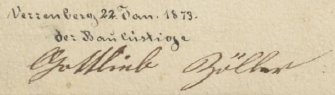 Verrenberg 22. Jan. 1873.
der Baulustige
Gottlieb Zöller